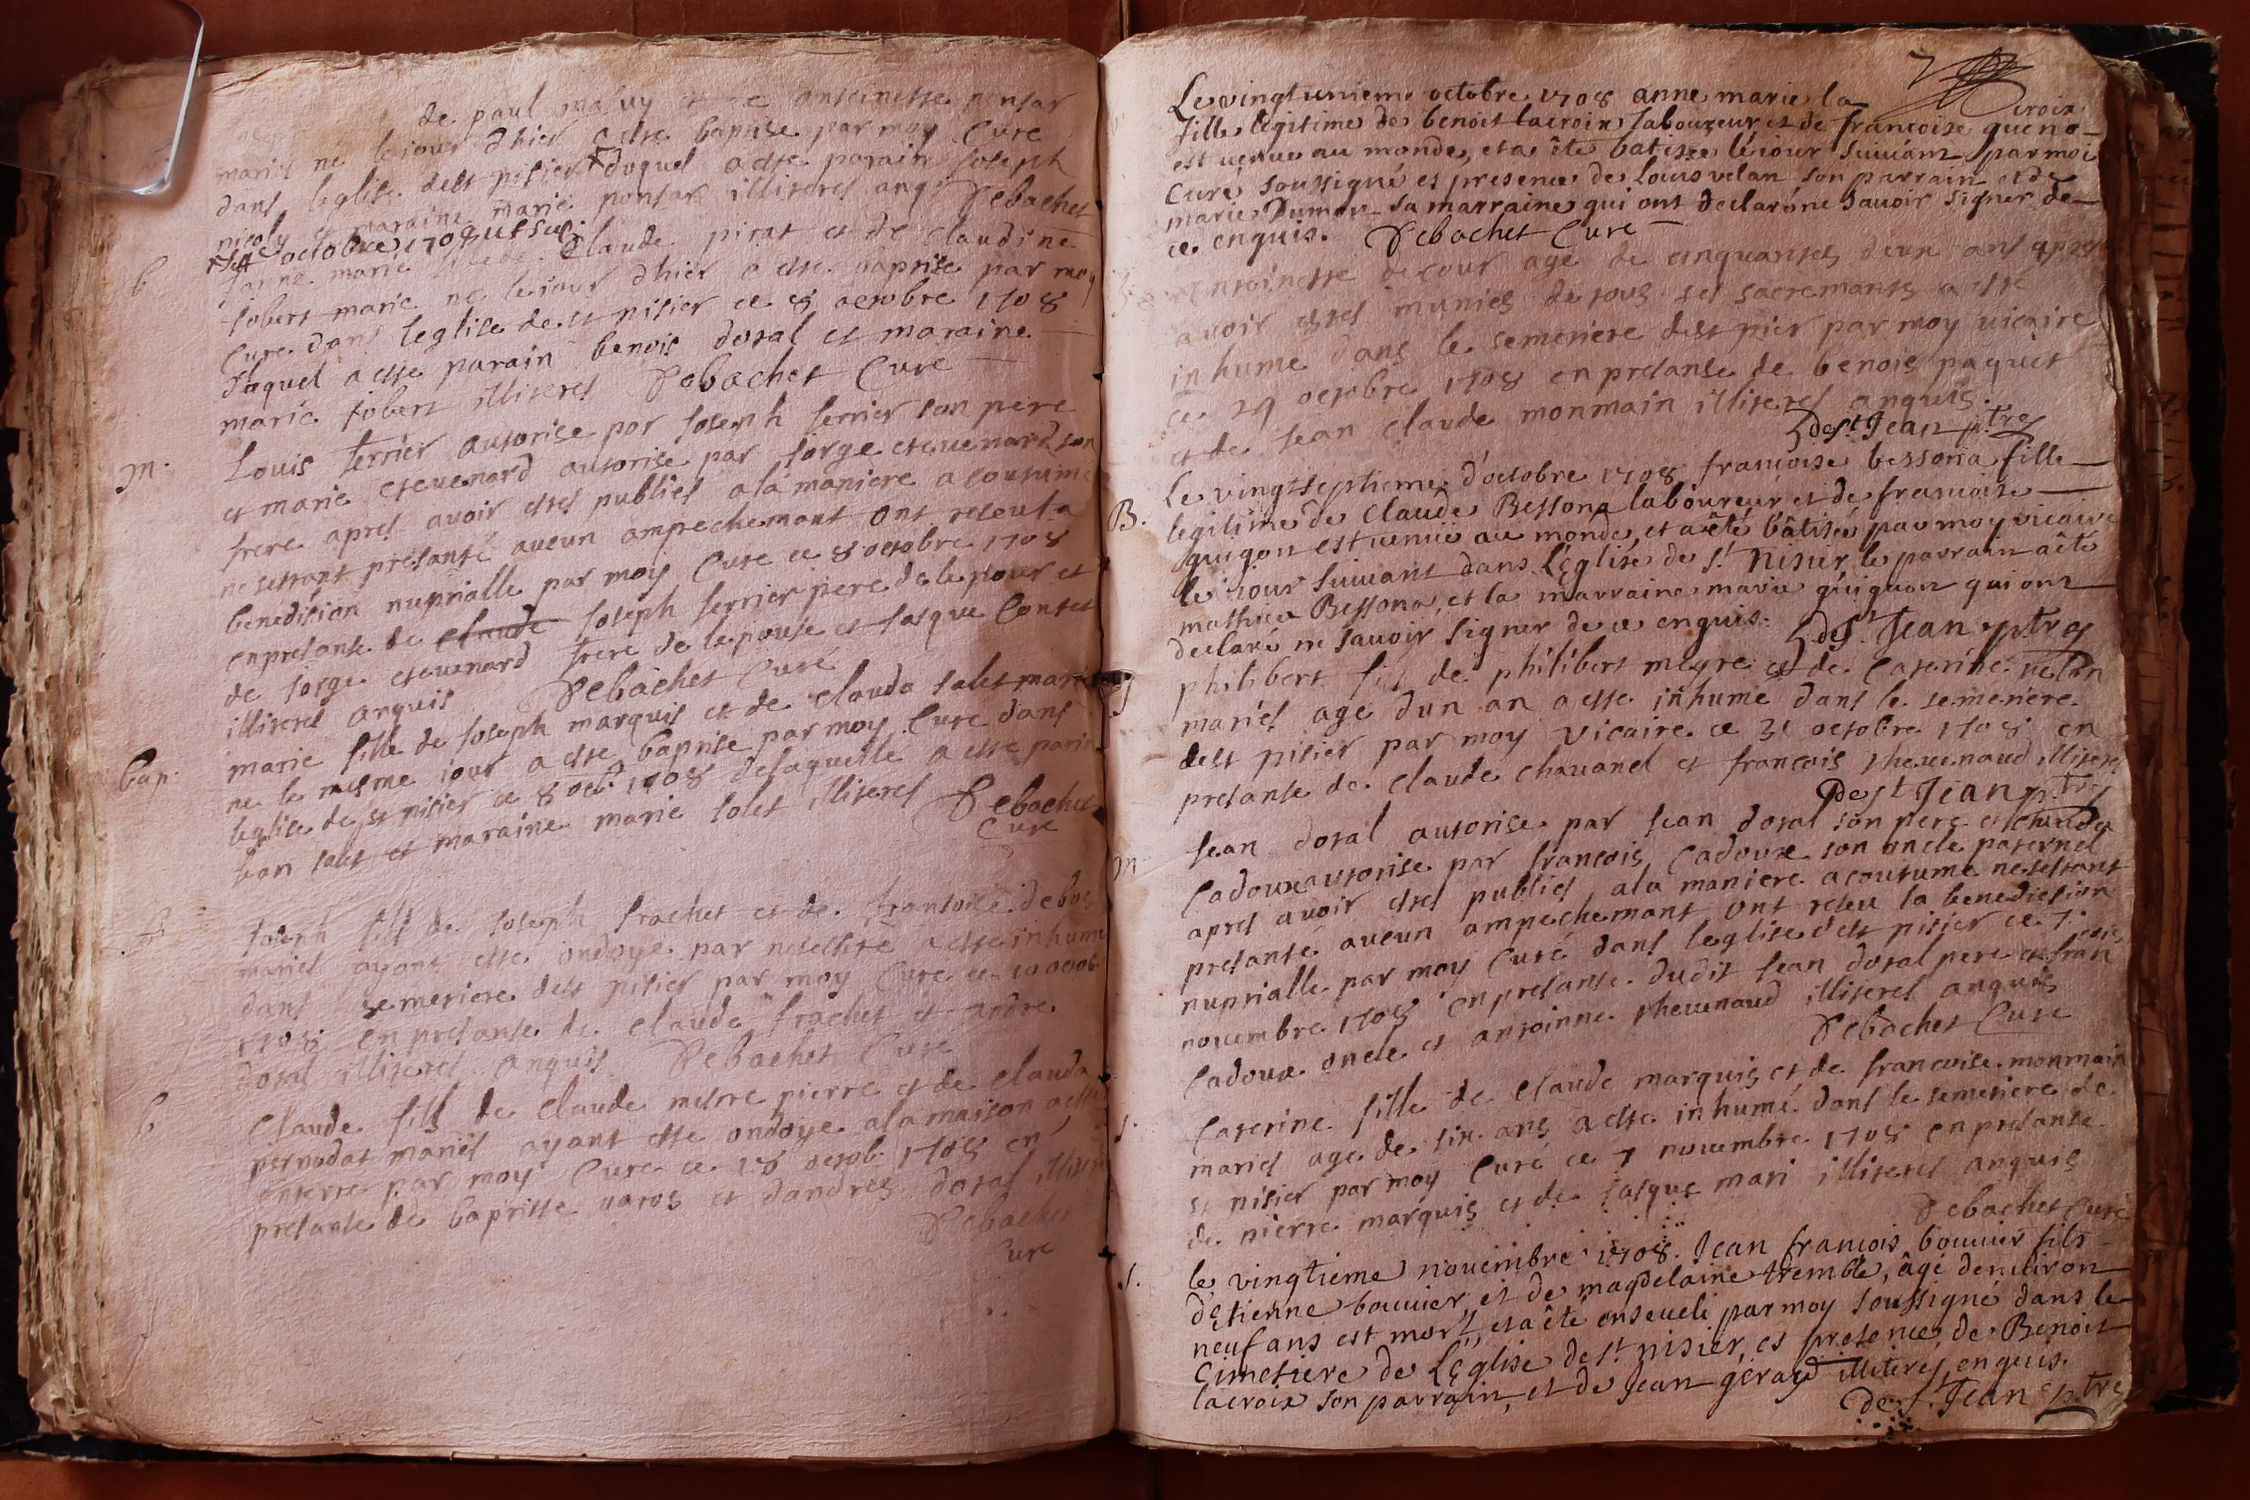 de paul maluy et de antoinette ponsar
mariés né le jour dhier a esté baptisé par moy Curé
dans leglise dest nisier duquel a esté parain Joseph
nicoly et maraine marie ponsar illiterés anqs Debachet
7 octobre 1708
fils de Claude pirat et de Claudine
Jobert mariés né le jour dhier a esté baptisé par moy
Curé dans leglise de st nisier ce 8 octobre 1708
duquel a esté parain benois doral et maraine
marie Jobert illiterés Debachet Curé
b
m.
Louis terrier autorise par Joseph terrier son pere
et marie etevenard autorise par Jorge etevenard son
frere apres avoir estes publies a la maniere acoutumé
ne sestant presanté aucun ampechemant ont reseu la
benedision nuptialle par moy Curé ce 8 octobre 1708
en presanse de claude Joseph terrier pere de lepour et
de Jorge etevenard frere de lepouse et Jasque Contet
illiterés anquis Debachet Curé
bap.
marie fille de Joseph marquis et de Clauda Salet mariés
né le mesme jour a esté baptisé par moy Curé dans
leglise de st nisier ce 8 oct. 1708 de laquelle a esté parin
ban salet et maraine marie Solet illiterés Debachet
Curé
Joseph fils de Joseph frachet et de fransoise debos
mariés ayant esté ondoyé par nesessité a esté inhumé
dans semetiere dest nisier par moy Curé ce 10 octob
1708 en presanse de Claude frachet et andre
doral illiterés anquis Debachet Curé
b
Claude fils de Claude mestre pierre et de Clauda
pernodat mariés ayant esté ondoyé a la maison a esté
enterré par moy Curé ce 18 octob. 1708 en
presanse de baptiste varos et dandres doral illiter
Debachet
Curé
7
Le vingtunieme octobre 1708 anne marie la
croix
fille legitime de benoit lacroix laboureur et de francoise gueno
est venue au monde, et a été batisée le iour suivant par moi
Curé soussigné es presence de Louis velan son parrain et de
marie Dumon sa marraine qui ont declaré ne savoir signer de
ce enquis. Debachet Curé
antoinette decour agé de cinquantes deux ans apres
avoir estes munies de tous ses sacremants a esté
inhumé dans le semetiere dest nier par moy vicaire
ce 29 octobre 1708 en presanse de benois paquet
et de Jean Claude monmain illiterés anquis.
De st Jean ptre
B.
Le vingtseptieme d'octobre 1708 francoise bessona fille
legitime de Claude Bessona laboureur et de francoise
guigon est venüe au monde, et a été bâtisée par moy vicaire
le iour suivant dans L'église de St. Nisier, le parrain a été
mathieu Bessona, et la marraine marie guiguon qui ont
declaré ne savoir signer de ce enquis. De St. Jean ptre
philibert fils de philibert meyre et de Caterine velon
mariés agé dun an a esté inhumé dans le semetiere
dest nisier par moy vicaire ce 31 octobre 1708 en
presanse de Claude chavanel et francois thevenaud illiterés
De st Jean ptre
m
Jean doral autorise par Jean doral son pere et Clauda
Cadoux autorise par francois Cadoux son oncle paternel
apres avoir estes publies a la maniere acoutumé ne sestant
presanté aucun ampechemant ont reseu la benediction
nuptialle par moy Curé dans leglise dest nisier ce 7.
novembre 1708 en presanse dudit Jean doral pere et francois
Cadoux oncle et antoinne thevenaud illiterés anquis
Debachet Curé
s.
Caterine fille de Claude marquis et de francoise monmain
mariés agé de six ans a esté inhumé dans le semetiere de
st nisier par moy Curé ce 7 novembre 1708 en presanse
de pierre marquis et de Jasque mari illiterés anquis
Debachet Curé
s.
le vingtieme nouembre 1708. Jean francois bouuier fils
d'etienne bouuier et de magdelaine tremble, âgé denuiron
neuf ans est mort, et a été enseueli par moy soussigné dans le
Cimetiere de L'eglise de St. nisier, es presence de Benoit
lacroix son parrain, et de Jean gerard illiterés enquis.
de St. Jean ptre